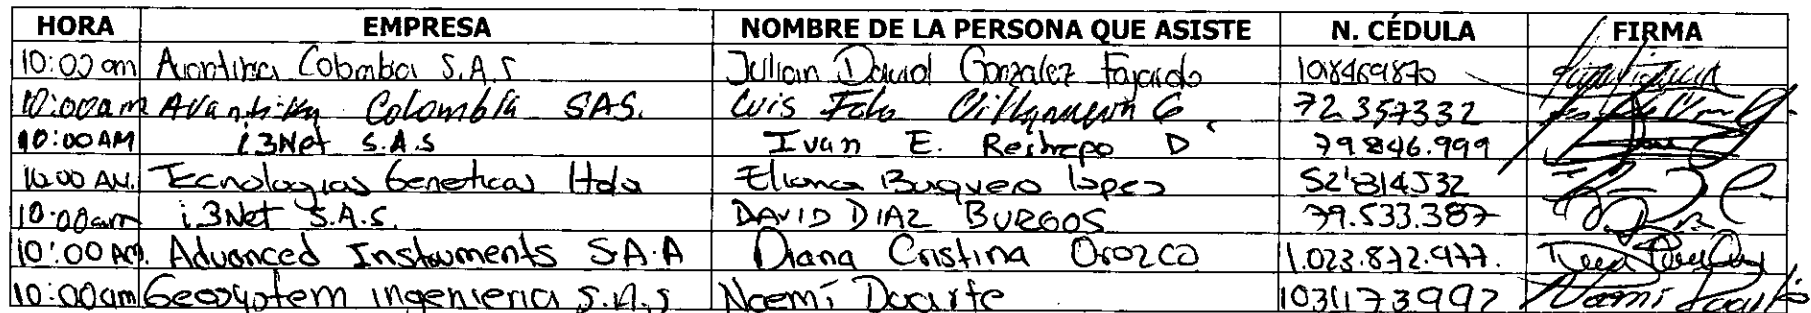 HORA EMPRESA NOMBRE DE LA PERSONA QUE ASISTE N. CÉDULA FIRMA
10:00 am Avantika Colombia S.A.S Julian David Gonzalez Fajardo 1018469870
10:00am Avantika Colombia SAS. Luis 72.357332
10:00AM i3Net S.A.S Ivan E. Restrepo D 79.846.999
10:00 AM. Tecnologias Geneticas ltda Eliana Baquero lopez 52'814532
10:00am i3Net S.A.S. DAVID DIAZ BURGOS 79.533.387
10:00 AM. Advanced Instruments S.A.A Diana Cristina Orozco 1.023.872.977.
10:00am Geosystem ingenieria S.A.S Noemi Duarte 1031173992 Noemi Duarte